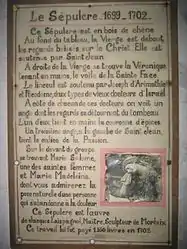 Le Sépulcre. 1699 - 1702.
Ce Sépulcre est en bois de chêne
Au fond du tableau, la Vierge est debout,
les regards baissés sur le Christ. Elle est
soutenue par Saint-Jean.
A droite de la Vierge se trouve la Véronique
tenant en mains, le voile de la Sainte Face.
Le linceul est soutenu par Joseph d'Arimathie
et Nicodème, deux types de vieux docteurs d'Israël.
A côté de chacun de ces docteurs on voit un
ange dont les regards se détournent du tombeau
L'un d'eux tient en mains la couronne d'épines.
Un troisième ange, à gauche de Saint-Jean,
tient le calice de la Passion.
Sur le devant du groupe
se trouvent Marie Salomé,
l'une des saintes femmes
et Marie Madeleine
dont vous admirerez la
pose naturelle d'une personne
qui s'abandonne à la douleur.
Ce Sépulcre est l'œuvre
de Jacques Lespaignol, Maître Sculpteur de Morlaix.
Ce travail lui fut payé 1.550 livres en 1702